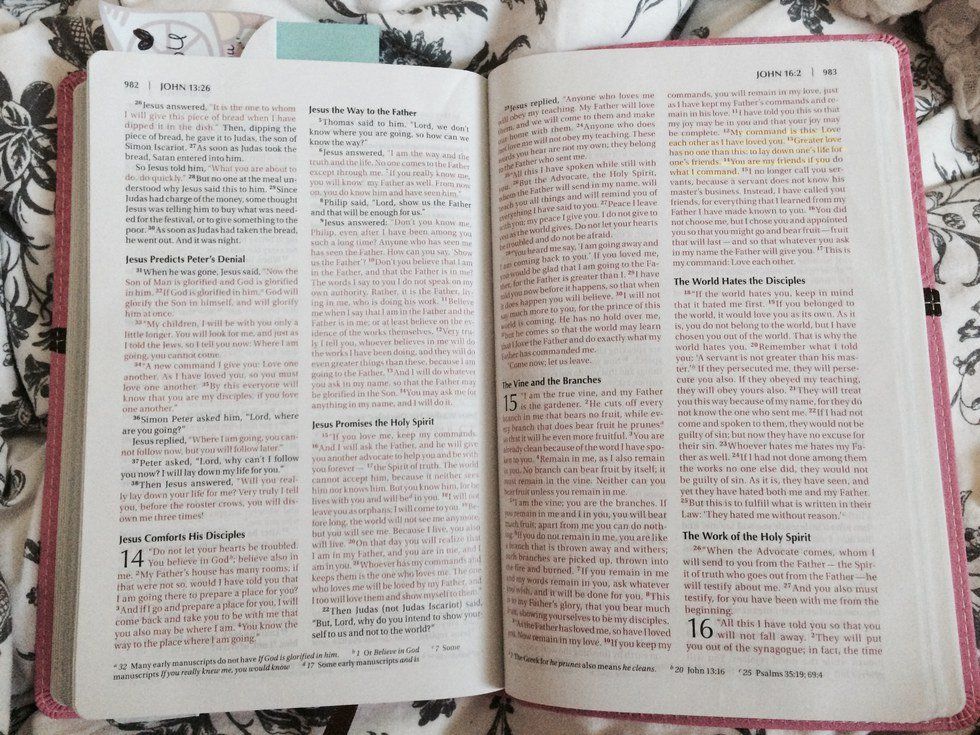 982 | JOHN 13:26
26Jesus answered, "It is the one to whom
I will give this piece of bread when I have
dipped it in the dish." Then, dipping the
piece of bread, he gave it to Judas, the son of
Simon Iscariot. 27As soon as Judas took the
bread, Satan entered into him.
So Jesus told him, "What you are about to
do, do quickly." 28But no one at the meal un-
derstood why Jesus said this to him. 29Since
Judas had charge of the money, some thought
Jesus was telling him to buy what was need-
ed for the festival, or to give something to the
poor. 30As soon as Judas had taken the bread,
he went out. And it was night.
Jesus Predicts Peter's Denial
31When he was gone, Jesus said, "Now the
Son of Man is glorified and God is glorified
in him. 32If God is glorified in him,a God will
glorify the Son in himself, and will glorify
him at once.
33"My children, I will be with you only a
little longer. You will look for me, and just as
I told the Jews, so I tell you now: Where I am
going, you cannot come.
34"A new command I give you: Love one
another. As I have loved you, so you must
love one another. 35By this everyone will
know that you are my disciples, if you love
one another."
36Simon Peter asked him, "Lord, where
are you going?"
Jesus replied, "Where I am going, you can-
not follow now, but you will follow later."
37Peter asked, "Lord, why can't I follow
you now? I will lay down my life for you."
38Then Jesus answered, "Will you real-
ly lay down your life for me? Very truly I tell
you, before the rooster crows, you will dis-
own me three times!
Jesus Comforts His Disciples
14 "Do not let your hearts be troubled.
You believe in Godb; believe also in
me. 2My Father's house has many rooms; if
that were not so, would I have told you that
I am going there to prepare a place for you?
3And if I go and prepare a place for you, I will
come back and take you to be with me that
you also may be where I am. 4You know the
way to the place where I am going."
Jesus the Way to the Father
5Thomas said to him, "Lord, we don't
know where you are going, so how can we
know the way?"
6Jesus answered, "I am the way and the
truth and the life. No one comes to the Father
except through me. 7If you really know me,
you will know my Father as well. From now
on, you do know him and have seen him."
8Philip said, "Lord, show us the Father
and that will be enough for us."
9Jesus answered: "Don't you know me,
Philip, even after I have been among you
such a long time? Anyone who has seen me
has seen the Father. How can you say, 'Show
us the Father'? 10Don't you believe that I am
in the Father, and that the Father is in me?
The words I say to you I do not speak on my
own authority. Rather, it is the Father, liv-
ing in me, who is doing his work. 11Believe
me when I say that I am in the Father and the
Father is in me; or at least believe on the ev-
idence of the works themselves. 12Very tru-
ly I tell you, whoever believes in me will do
the works I have been doing, and they will do
even greater things than these, because I am
going to the Father. 13And I will do whatever
you ask in my name, so that the Father may
be glorified in the Son. 14You may ask me for
anything in my name, and I will do it.
Jesus Promises the Holy Spirit
15"If you love me, keep my commands.
16And I will ask the Father, and he will give
you another advocate to help you and be with
you forever — 17the Spirit of truth. The world
cannot accept him, because it neither sees
him nor knows him. But you know him, for he
lives with you and will be in you. 18I will not
leave you as orphans; I will come to you. 19Be-
fore long, the world will not see me anymore,
but you will see me. Because I live, you also
will live. 20On that day you will realize that
I am in my Father, and you are in me, and I
am in you. 21Whoever has my commands and
keeps them is the one who loves me. The one
who loves me will be loved by my Father, and
I too will love them and show myself to them."
22Then Judas (not Judas Iscariot) said,
"But, Lord, why do you intend to show your-
self to us and not to the world?"
a 32 Many early manuscripts do not have If God is glorified in him. b 1 Or Believe in God c 7 Some
manuscripts If you really knew me, you would know d 17 Some early manuscripts and is
JOHN 16:2 | 983
23Jesus replied, "Anyone who loves me
will obey my teaching. My Father will love
them, and we will come to them and make
our home with them. 24Anyone who does
not love me will not obey my teaching. These
words you hear are not my own; they belong
to the Father who sent me.
25"All this I have spoken while still with
you. 26But the Advocate, the Holy Spirit,
whom the Father will send in my name, will
teach you all things and will remind you of
everything I have said to you. 27Peace I leave
with you; my peace I give you. I do not give to
you as the world gives. Do not let your hearts
be troubled and do not be afraid.
28"You heard me say, 'I am going away and
I am coming back to you.' If you loved me,
you would be glad that I am going to the Fa-
ther, for the Father is greater than I. 29I have
told you now before it happens, so that when
it does happen you will believe. 30I will not
say much more to you, for the prince of this
world is coming. He has no hold over me,
31but he comes so that the world may learn
that I love the Father and do exactly what my
Father has commanded me.
"Come now; let us leave.
The Vine and the Branches
15 "I am the true vine, and my Father
is the gardener. 2He cuts off every
branch in me that bears no fruit, while ev-
ery branch that does bear fruit he prunesa
so that it will be even more fruitful. 3You are
already clean because of the word I have spo-
ken to you. 4Remain in me, as I also remain
in you. No branch can bear fruit by itself; it
must remain in the vine. Neither can you
bear fruit unless you remain in me.
5"I am the vine; you are the branches. If
you remain in me and I in you, you will bear
much fruit; apart from me you can do noth-
ing. 6If you do not remain in me, you are like
a branch that is thrown away and withers;
such branches are picked up, thrown into
the fire and burned. 7If you remain in me
and my words remain in you, ask whatever
you wish, and it will be done for you. 8This
is to my Father's glory, that you bear much
fruit, showing yourselves to be my disciples.
9"As the Father has loved me, so have I loved
you. Now remain in my love. 10If you keep my
commands, you will remain in my love, just
as I have kept my Father's commands and re-
main in his love. 11I have told you this so that
my joy may be in you and that your joy may
be complete. 12My command is this: Love
each other as I have loved you. 13Greater love
has no one than this: to lay down one's life for
one's friends. 14You are my friends if you do
what I command. 15I no longer call you ser-
vants, because a servant does not know his
master's business. Instead, I have called you
friends, for everything that I learned from my
Father I have made known to you. 16You did
not choose me, but I chose you and appointed
you so that you might go and bear fruit — fruit
that will last — and so that whatever you ask
in my name the Father will give you. 17This is
my command: Love each other.
The World Hates the Disciples
18"If the world hates you, keep in mind
that it hated me first. 19If you belonged to
the world, it would love you as its own. As it
is, you do not belong to the world, but I have
chosen you out of the world. That is why the
world hates you. 20Remember what I told
you: 'A servant is not greater than his mas-
ter.'b If they persecuted me, they will perse-
cute you also. If they obeyed my teaching,
they will obey yours also. 21They will treat
you this way because of my name, for they do
not know the one who sent me. 22If I had not
come and spoken to them, they would not be
guilty of sin; but now they have no excuse for
their sin. 23Whoever hates me hates my Fa-
ther as well. 24If I had not done among them
the works no one else did, they would not
be guilty of sin. As it is, they have seen, and
yet they have hated both me and my Father.
25But this is to fulfill what is written in their
Law: 'They hated me without reason.'c
The Work of the Holy Spirit
26"When the Advocate comes, whom I
will send to you from the Father — the Spir-
it of truth who goes out from the Father — he
will testify about me. 27And you also must
testify, for you have been with me from the
beginning.
16 "All this I have told you so that you
will not fall away. 2They will put
you out of the synagogue; in fact, the time
a 2 The Greek for he prunes also means he cleans. b 20 John 13:16 c 25 Psalms 35:19; 69:4